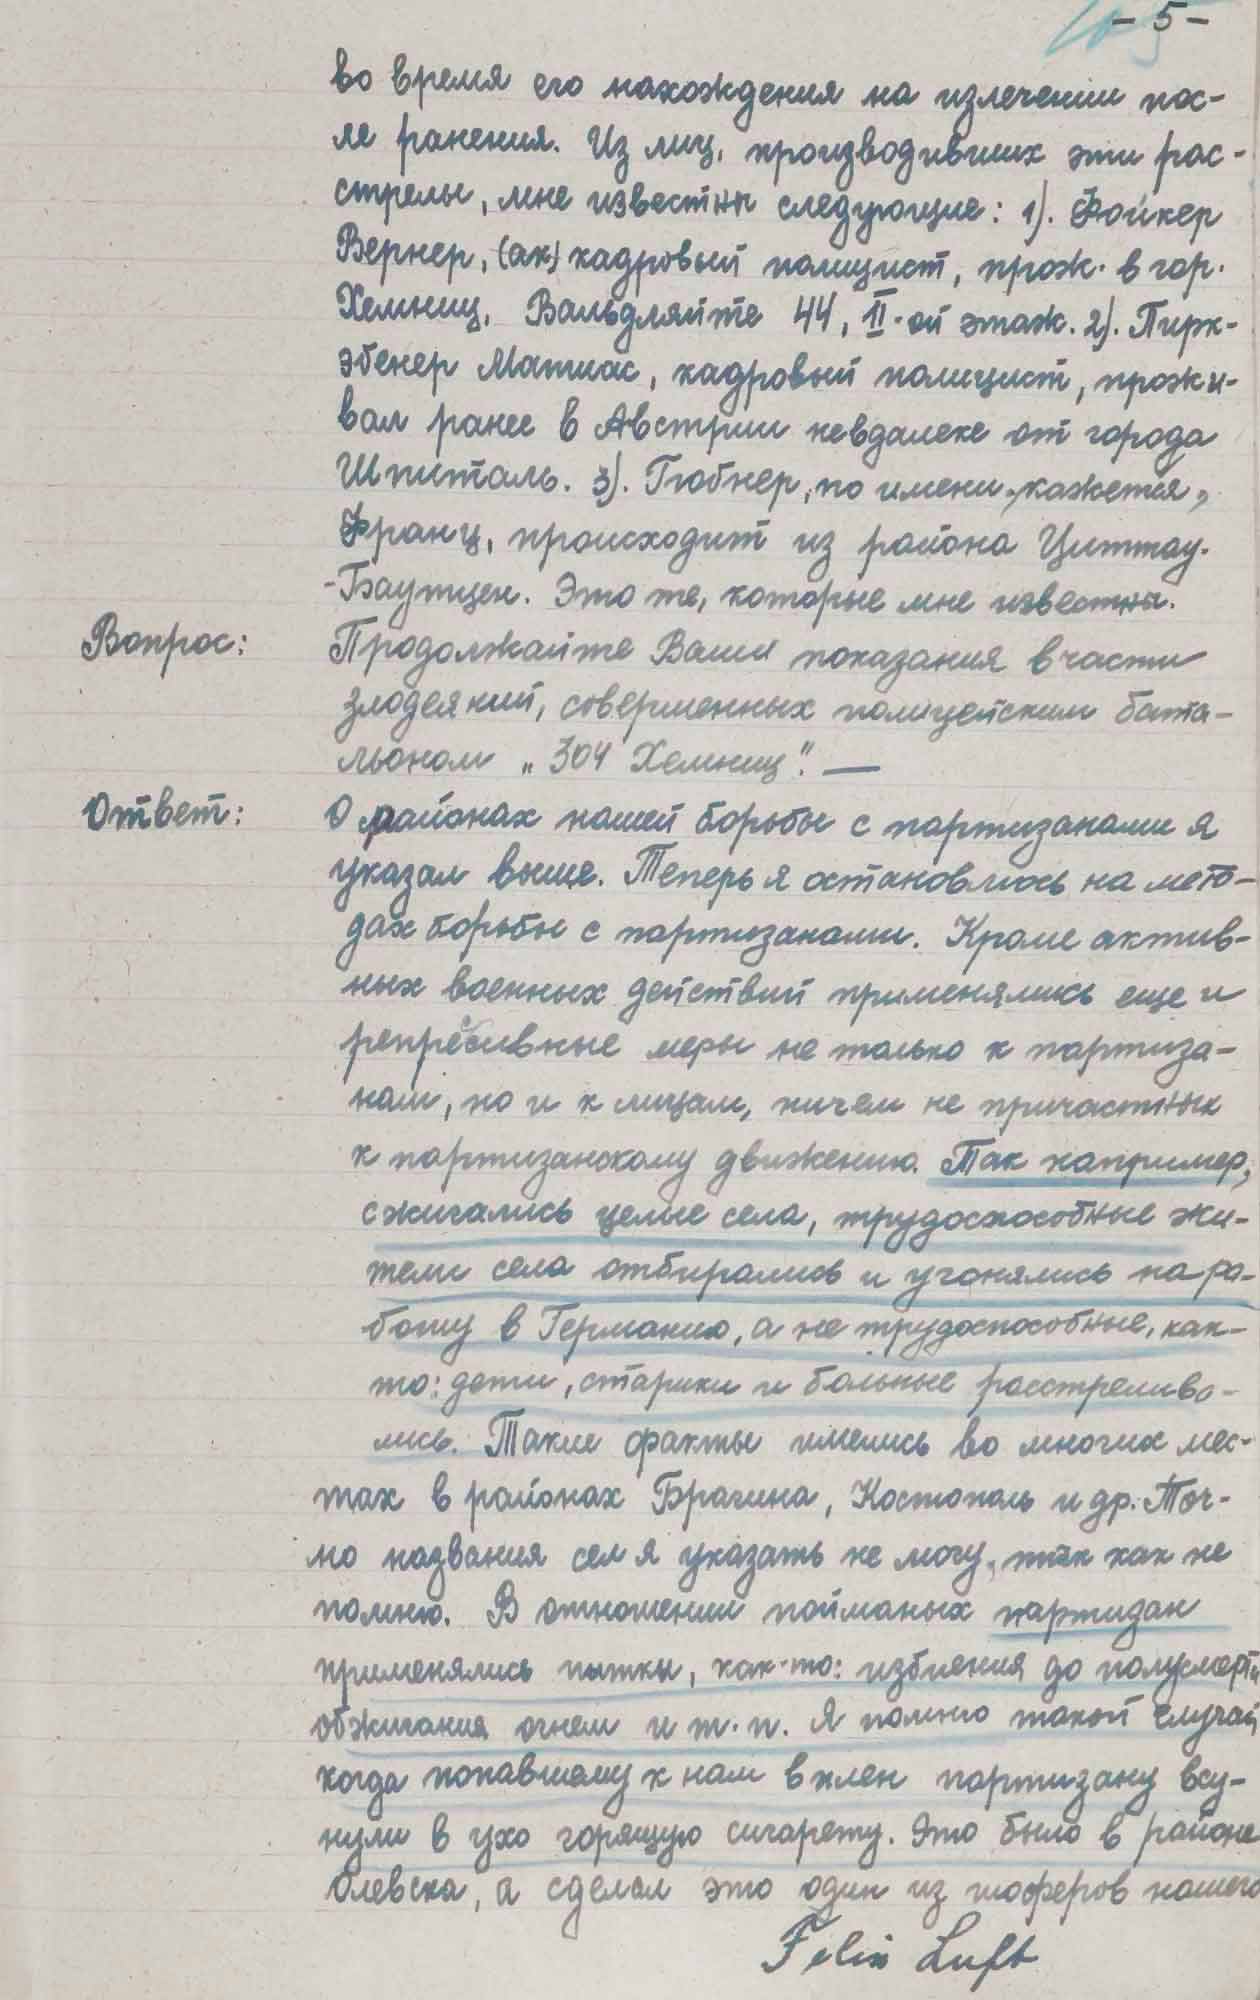 - 5 -
во время его нахождения на излечении пос-
ле ранения. Из лиц, производивших эти рас-
стрелы, мне известны следующие: 1). Фойкер
Вернер, (ак) кадровый полицист, прож. в гор.
Хемниц, Вальдляйте 44, II-ой этаж. 2). Пирк-
эбенер Матиас, кадровый полицист, прожи-
вал ранее в Австрии невдалеке от города
Шпиталь. 3). Гюбнер, по имени, кажется,
Франц, происходит из района Циттау-
-Баутцен. Это те, которые мне известны.
Вопрос: Продолжайте Ваши показания в части
злодеяний, совершенных полицейским бата-
льоном „304 Хемниц". —
Ответ: О районах нашей борьбы с партизанами я
указал выше. Теперь я остановлюсь на мето-
дах борьбы с партизанами. Кроме актив-
ных военных действий применялись еще и
репрессивные меры не только к партиза-
нам, но и к лицам, ничем не причастных
к партизанскому движению. Так например,
сжигались целые села, трудоспособные жи-
тели села отбирались и угонялись на ра-
боту в Германию, а не трудоспособные, как-
то: дети, старики и больные расстрелива-
лись. Такие факты имелись во многих мес-
тах в районах Брагина, Костополь и др. Точ-
но названия сел я указать не могу, так как не
помню. В отношении пойманых партизан
применялись пытки, как-то: избиения до полусмерти
обжигания огнем и т.п. Я помню такой случай
когда попавшему к нам в плен партизану всу-
нули в ухо горящую сигарету. Это было в районе
Олевска, а сделал это один из шоферов нашего
Felix Luft